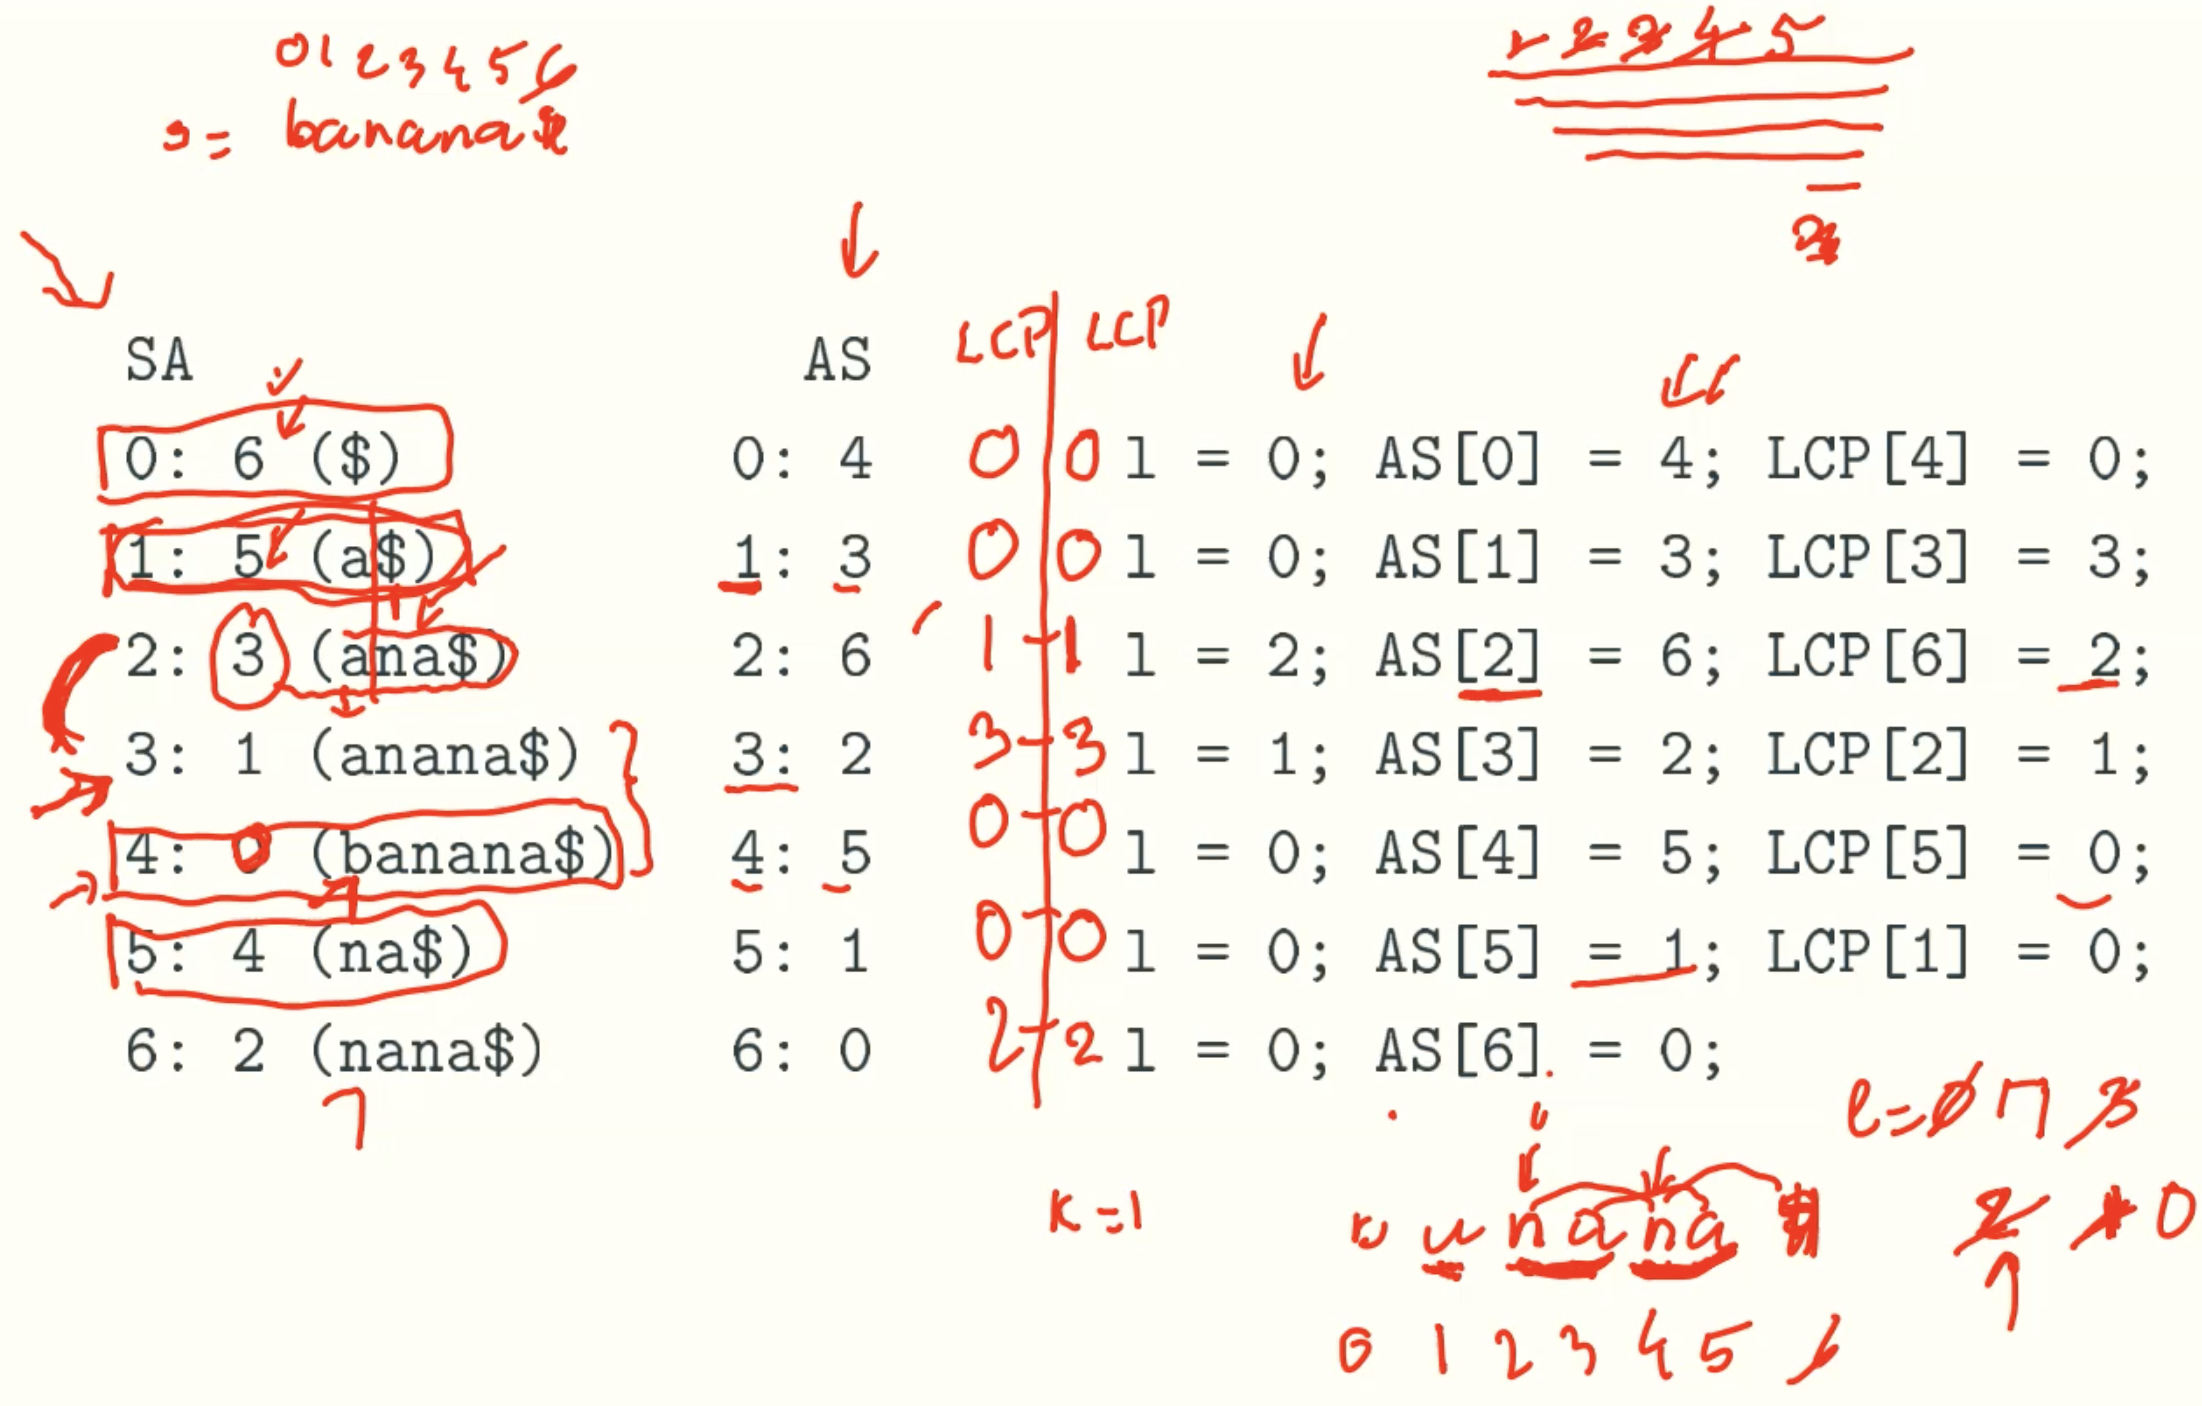 0 1 2 3 4 5 6
1 2 3 4 5
s = banana$
LCP LCP
SA AS
0: 6 ($) 0: 4 0 0 l = 0; AS[0] = 4; LCP[4] = 0;
1: 5 (a$) 1: 3 0 0 l = 0; AS[1] = 3; LCP[3] = 3;
2: 3 (ana$) 2: 6 1 - 1 l = 2; AS[2] = 6; LCP[6] = 2;
3: 1 (anana$) 3: 2 3 - 3 l = 1; AS[3] = 2; LCP[2] = 1;
4: 0 (banana$) 4: 5 0 - 0 l = 0; AS[4] = 5; LCP[5] = 0;
5: 4 (na$) 5: 1 0 - 0 l = 0; AS[5] = 1; LCP[1] = 0;
6: 2 (nana$) 6: 0 2 - 2 l = 0; AS[6] = 0;
l = 0 3
K = 1
n a n a 2 0
0 1 2 3 4 5 6